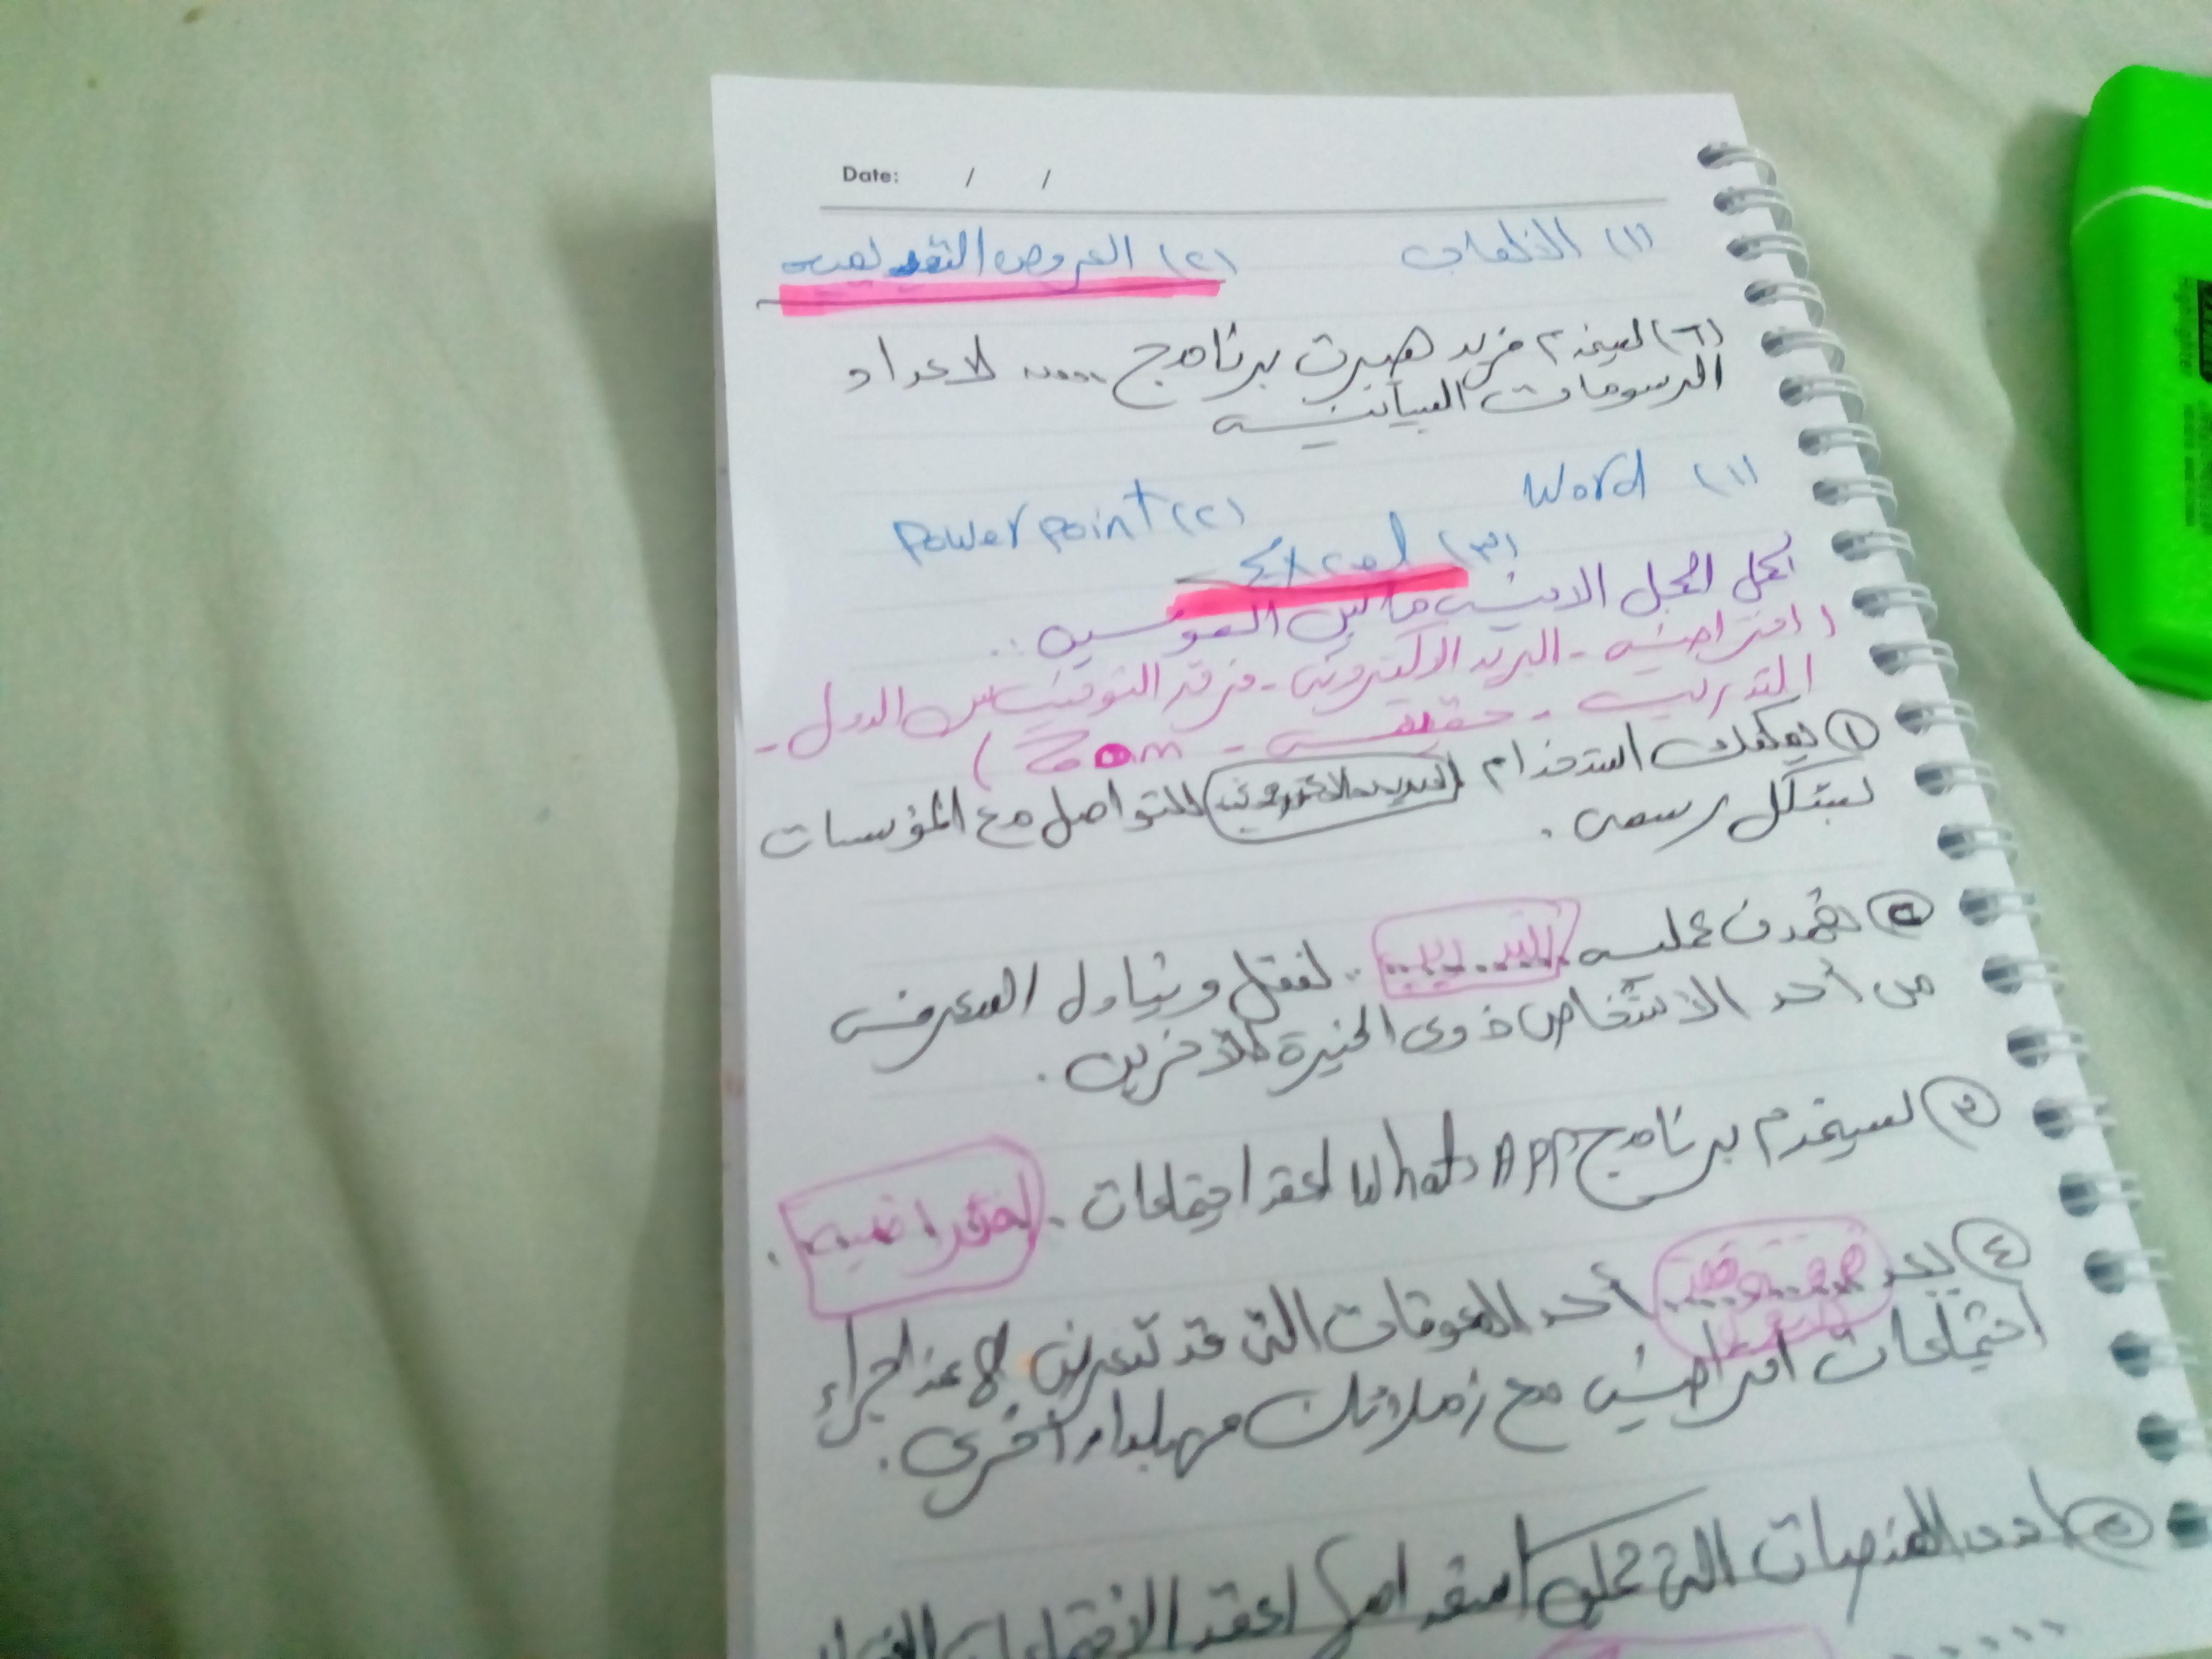 Date: / /
(١) الألعاب (٢) العروض التقديمية
(٦) يستخدم فريد هيبرت برنامج ..... لاعداد
الرسومات البيانية
(١) Word (٢) Power point
(٣) Excel
اكمل الجمل الاتية مابين القوسين ..
(افتراضية - البريد الالكترونى - فرق التوقيت بين الدول -
التدريب - حقيقية - Zoom)
① يمكنك استخدام البريد الالكترونى للتواصل مع المؤسسات
بشكل رسمى .
② تهدف عملية التدريب لنقل وتبادل المعرفة
من أحد الاشخاص ذوى الخبرة للآخرين .
③ يستخدم برنامج Whats APP لعقد اجتماعات . افتراضية .
④ يعد فرق توقيت الدول أحد المعوقات التى قد تعرض لها عند اجراء
اجتماعات افتراضية مع زملائك من بلدان أخرى .
⑤ احدى المنصات التى يمكن استخدامها لعقد الاجتماعات